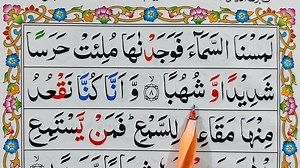 لَمَسْنَا السَّمَآءَ فَوَجَدْنٰهَا مُلِئَتْ حَرَسًا
شَدِيْدًا وَّ شُهُبًا ۙ﴿۸﴾ وَّ اَنَّا كُنَّا نَقْعُدُ
مِنْهَا مَقَاعِدَ لِلسَّمْعِ ؕ فَمَنْ يَّسْتَمِعِ